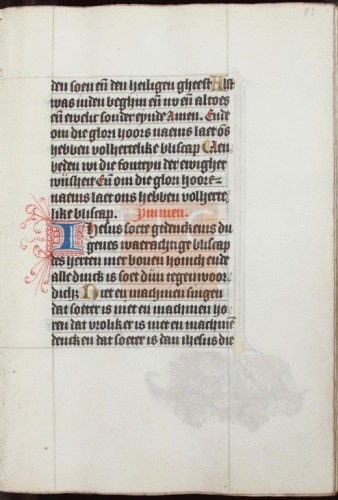 den soen en̄ den heiligen gheest Alst
was inden beghin en̄ nv en̄ altoes
en̄ ewelic sonder eynde Amen. Ende
om die glori hoors naems laet ōs
hebben volhertelike bliscap Aen
beden wi die fonteyn der ewigher
wijsheit En̄ om die glori hoore
naems laet ons hebben volherte
like bliscap. Ymnen.
Ihesus soete gedenckenis du
geues waerachtige bliscap
tes herten mer bouen honich ende
alle dinck is soet dijn tegenwoor
dich Niet en machmen singen
dat soeter is niet en machmen ho
ren dat vroliker is niet en machmen
dencken dat soeter is dan ihesus die